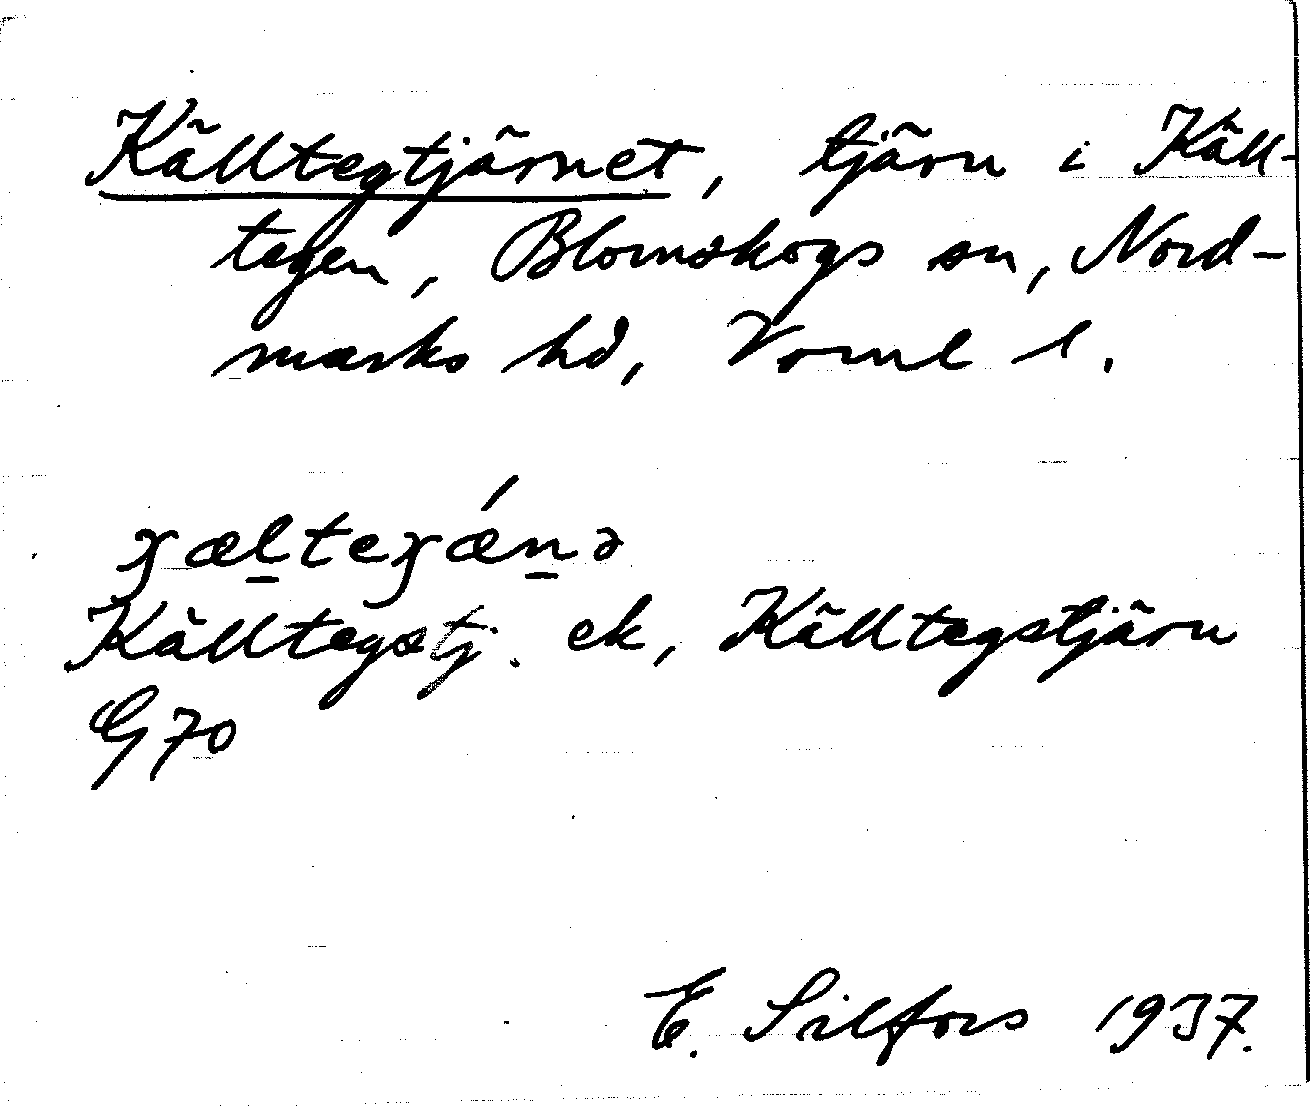 Källtegtjärnet, tjärn i Käll-
tegen, Blomskogs sn, Nord-
marks hd, Värml l.
ɣæl̠teɣǽn̠ə
Källtegstj. ek, Källtegstjärn
G70
E. Silfors 1937.